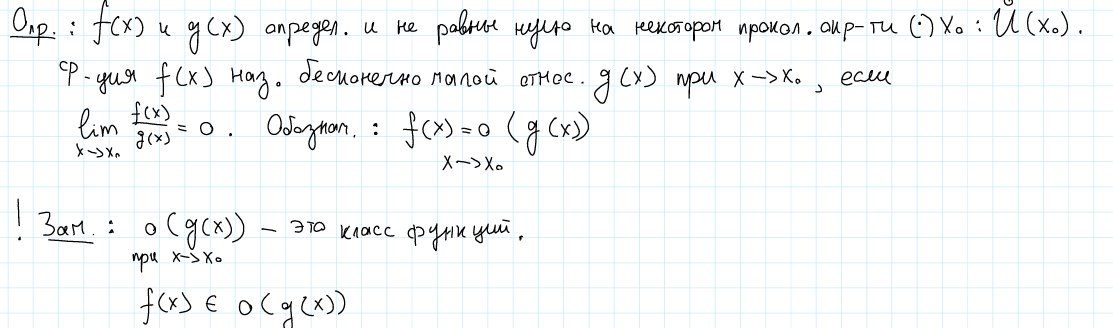 Опр. : f(x) и g(x) определ. и не равны нулю на некотором прокол. окр-ти (·) x₀ : Ů(x₀).
Ф-ция f(x) наз. бесконечно малой относ. g(x) при x → x₀, если
lim f(x)/g(x) = 0. Обознач. : f(x) = o(g(x))
x→x₀ x→x₀
! Зам. : o(g(x)) – это класс функций.
при x→x₀
f(x) ∈ o(g(x))